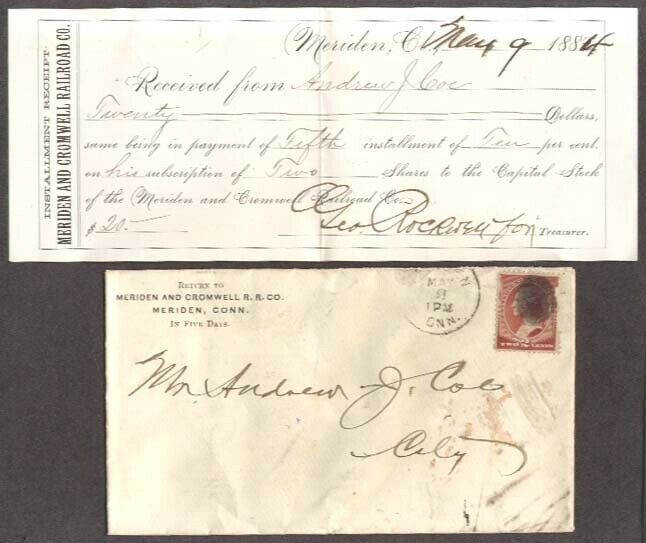 INSTALLMENT RECEIPT.
MERIDEN AND CROMWELL RAILROAD CO.
Meriden, Ct., May 9 1884
Received from Andrew J. Coe
Twenty Dollars,
same being in payment of Fifth installment of Ten per cent.
on his subscription of Two Shares to the Capital Stock
of the Meriden and Cromwell Railroad Co.
$20.- Geo Rockwell Treasurer.
RETURN TO
MERIDEN AND CROMWELL R. R. CO.
MERIDEN, CONN.
IN FIVE DAYS.
MAY
1 PM
CONN.
TWO CENTS
Mr. Andrew J. Coe
City